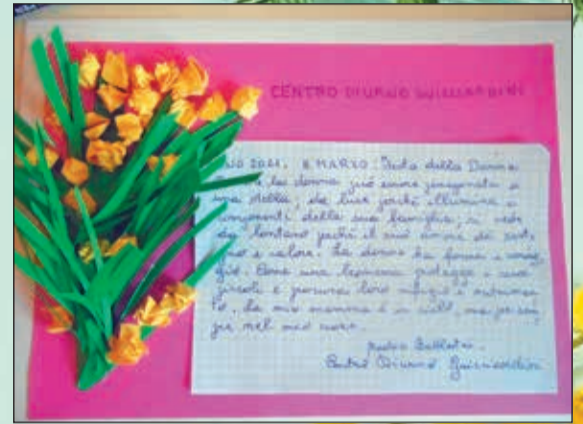 CENTRO DIURNO GUICCIARDINI
2021. 8 MARZO: Festa della Donna
la donna può essere paragonata a
una stella; dà luce perché illumina i
componenti della sua famiglia, si vede
da lontano perché il suo amore dà
e calore. La donna ha forza e
Come una leonessa protegge i suoi
piccoli e procura loro rifugio e nutrimen
to. La mia mamma è in cielo, ma
nel mio cuore.
Centro Diurno Guicciardini